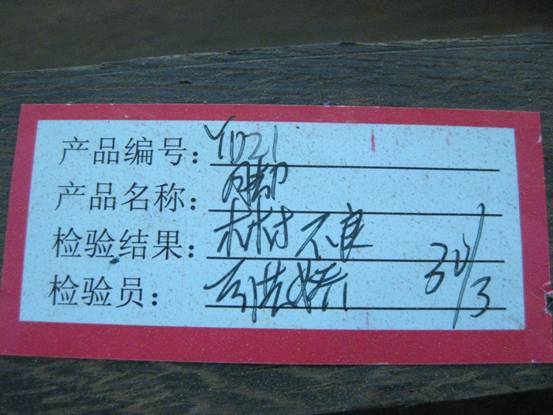 产品编号：Y1721
产品名称：脚
检验结果：木材不良
检验员：
30/3